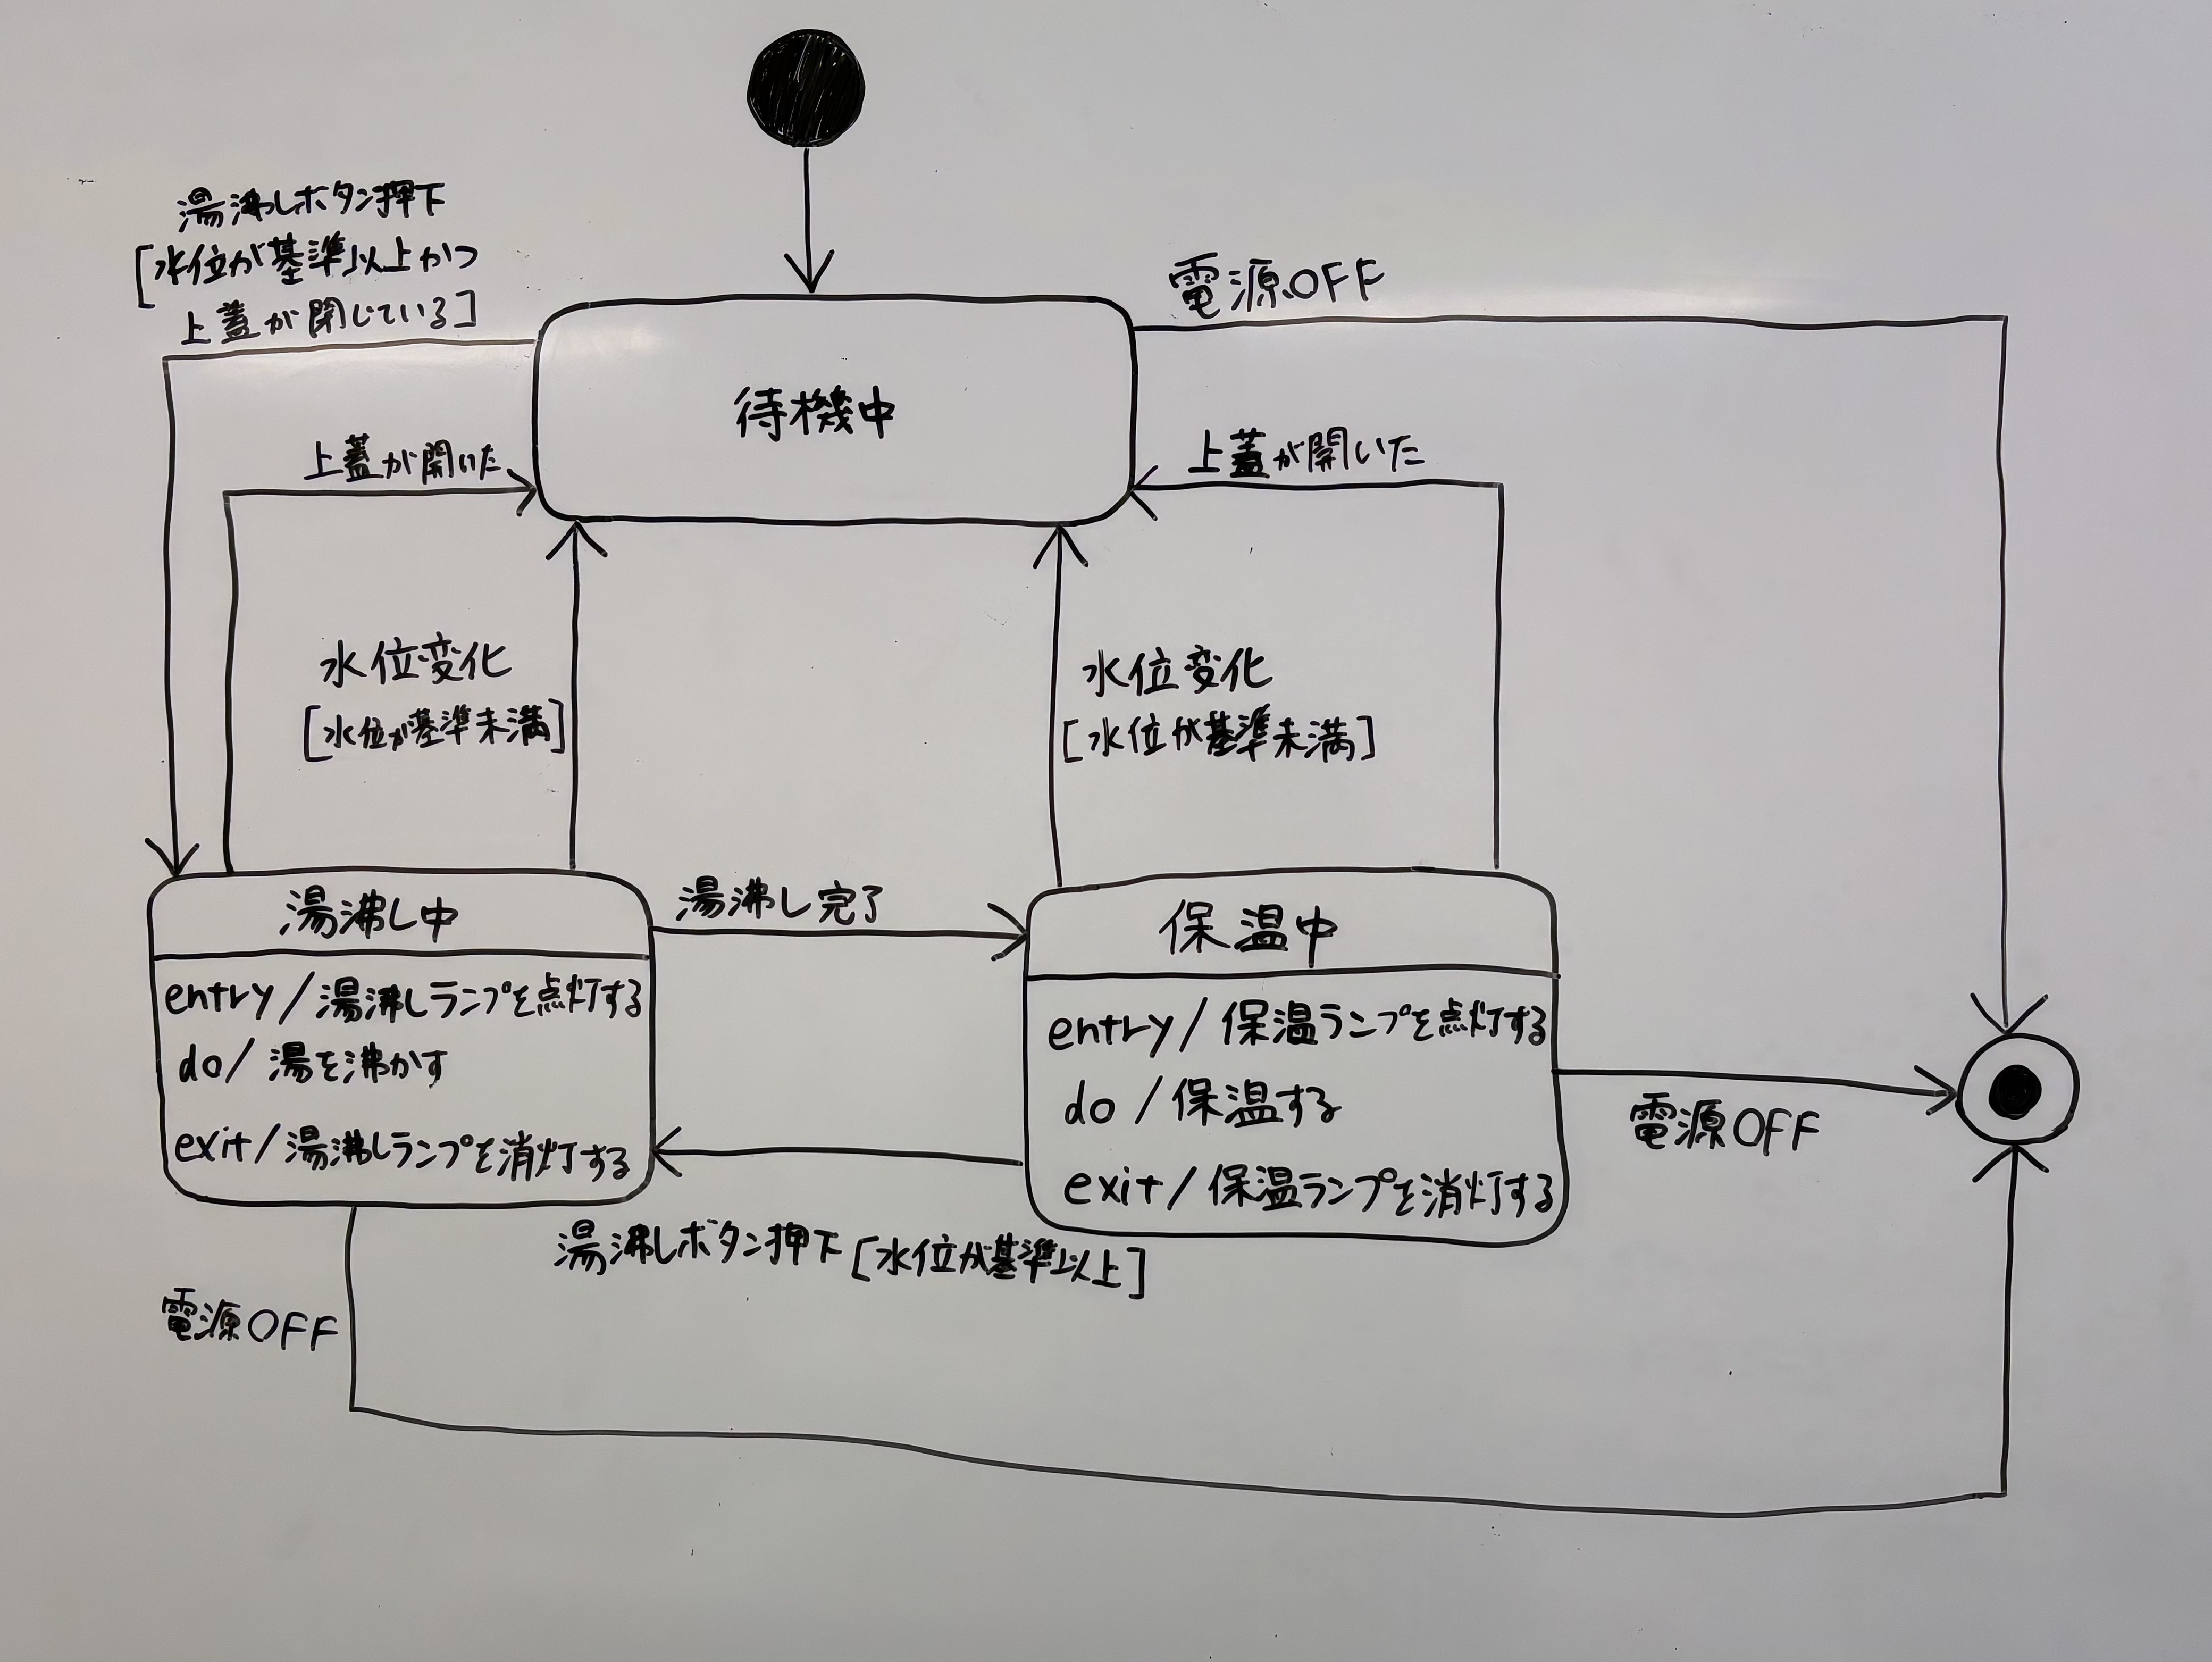 湯沸しボタン押下
[水位が基準以上かつ
上蓋が閉じている]
電源OFF
待機中
上蓋が開いた
上蓋が開いた
水位変化
[水位が基準未満]
水位変化
[水位が基準未満]
湯沸し中
entry/湯沸しランプを点灯する
do/湯を沸かす
exit/湯沸しランプを消灯する
湯沸し完了
保温中
entry/保温ランプを点灯する
do/保温する
exit/保温ランプを消灯する
電源OFF
湯沸しボタン押下[水位が基準以上]
電源OFF